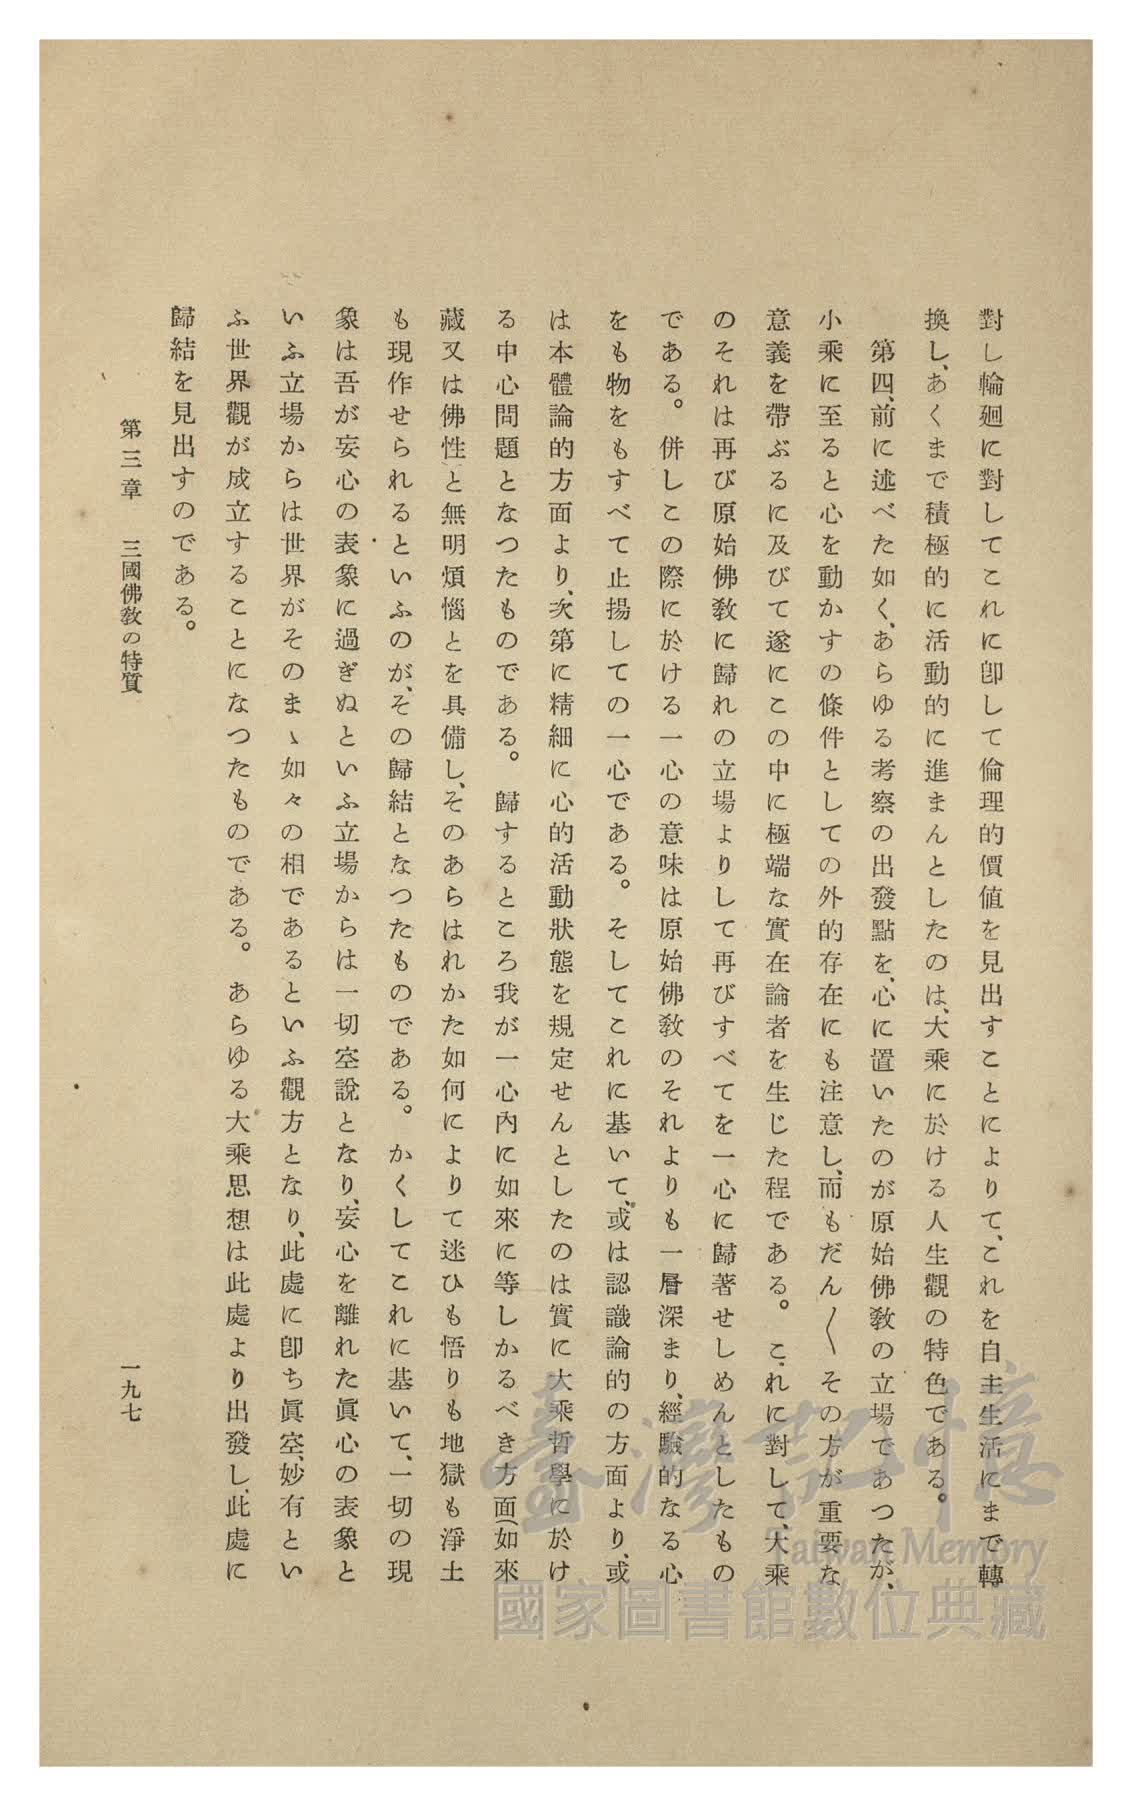 對し輪廻に對してこれに卽して倫理的價値を見出すことによりて、これを自主生活にまで轉
換し、あくまで積極的に活動的に進まんとしたのは、大乘に於ける人生觀の特色である。
第四、前に述べた如く、あらゆる考察の出發點を、心に置いたのが原始佛敎の立場であつたが、
小乘に至ると心を動かすの條件としての外的存在にも注意し、而もだん〳〵その方が重要な
意義を帶ぶるに及びて遂にこの中に極端な實在論者を生じた程である。これに對して、大乘
のそれは再び原始佛敎に歸れの立場よりして再びすべてを一心に歸著せしめんとしたもの
である。併しこの際に於ける一心の意味は原始佛敎のそれよりも一層深まり、經驗的なる心
をも物をもすべて止揚しての一心である。そしてこれに基いて、或は認識論的の方面より、或
は本體論的方面より、次第に精細に心的活動狀態を規定せんとしたのは實に大乘哲學に於け
る中心問題となつたものである。歸するところ我が一心內に如來に等しかるべき方面(如來
藏又は佛性と無明煩惱とを具備し、そのあらはれかた如何によりて迷ひも悟りも地獄も淨土
も現作せられるといふのが、その歸結となつたものである。かくしてこれに基いて、一切の現
象は吾が妄心の表象に過ぎぬといふ立場からは一切空說となり、妄心を離れた眞心の表象と
いふ立場からは世界がそのまゝ如々の相であるといふ觀方となり、此處に卽ち眞空、妙有とい
ふ世界觀が成立することになつたものである。あらゆる大乘思想は此處より出發し、此處に
歸結を見出すのである。
第三章 三國佛敎の特質 一九七
臺灣記憶
Taiwan Memory
國家圖書館數位典藏